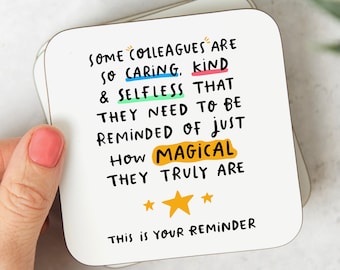 SOME COLLEAGUES ARE
SO CARING, KIND
& SELFLESS THAT
THEY NEED TO BE
REMINDED OF JUST
HOW MAGICAL
THEY TRULY ARE
THIS IS YOUR REMINDER